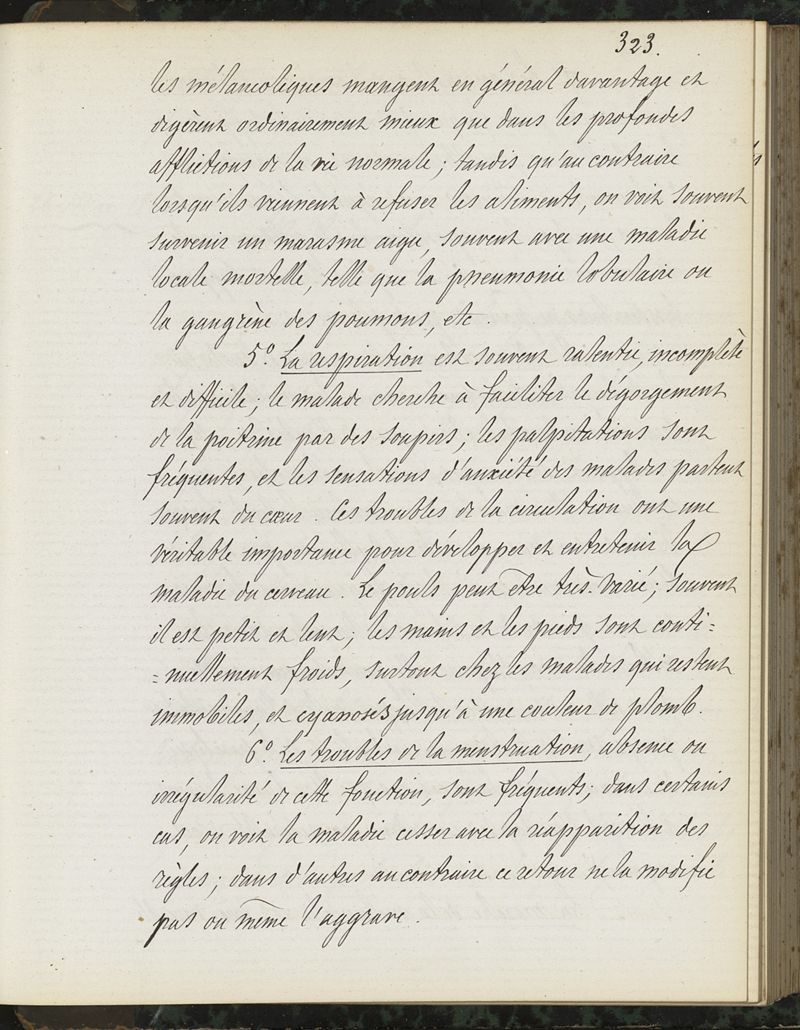 323.
les mélancoliques mangent en général davantage et
digèrent ordinairement mieux que dans les profondes
afflictions de la vie normale ; tandis qu'au contraire
lorsqu'ils viennent à refuser les aliments, on voit souvent
survenir un marasme aigu, souvent avec une maladie
locale mortelle, telle que la pneumonie lobulaire ou
la gangrène des poumons, etc.
5º. La respiration est souvent ralentie, incomplète
et difficile ; le malade cherche à faciliter le dégorgement
de la poitrine par des soupirs ; les palpitations sont
fréquentes, et les sensations d'anxiété des malades partent
souvent du cœur. Ces troubles de la circulation ont une
véritable importance pour développer et entretenir la
maladie du cerveau. Le pouls peut être très-varié ; souvent
il est petit et lent ; les mains et les pieds sont conti=
=nuellement froids, surtout chez les malades qui restent
immobiles, et cyanosés jusqu'à une couleur de plomb.
6º. Les troubles de la menstruation, absence ou
irrégularité de cette fonction, sont fréquents ; dans certains
cas, on voit la maladie cesser avec la réapparition des
règles ; dans d'autres au contraire ce retour ne la modifie
pas ou même l'aggrave.